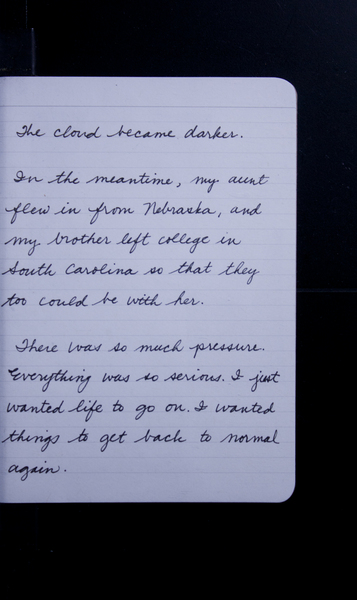 The cloud became darker.
In the meantime, my aunt
flew in from Nebraska, and
my brother left college in
South Carolina so that they
too could be with her.
There was so much pressure.
Everything was so serious. I just
wanted life to go on. I wanted
things to get back to normal
again.